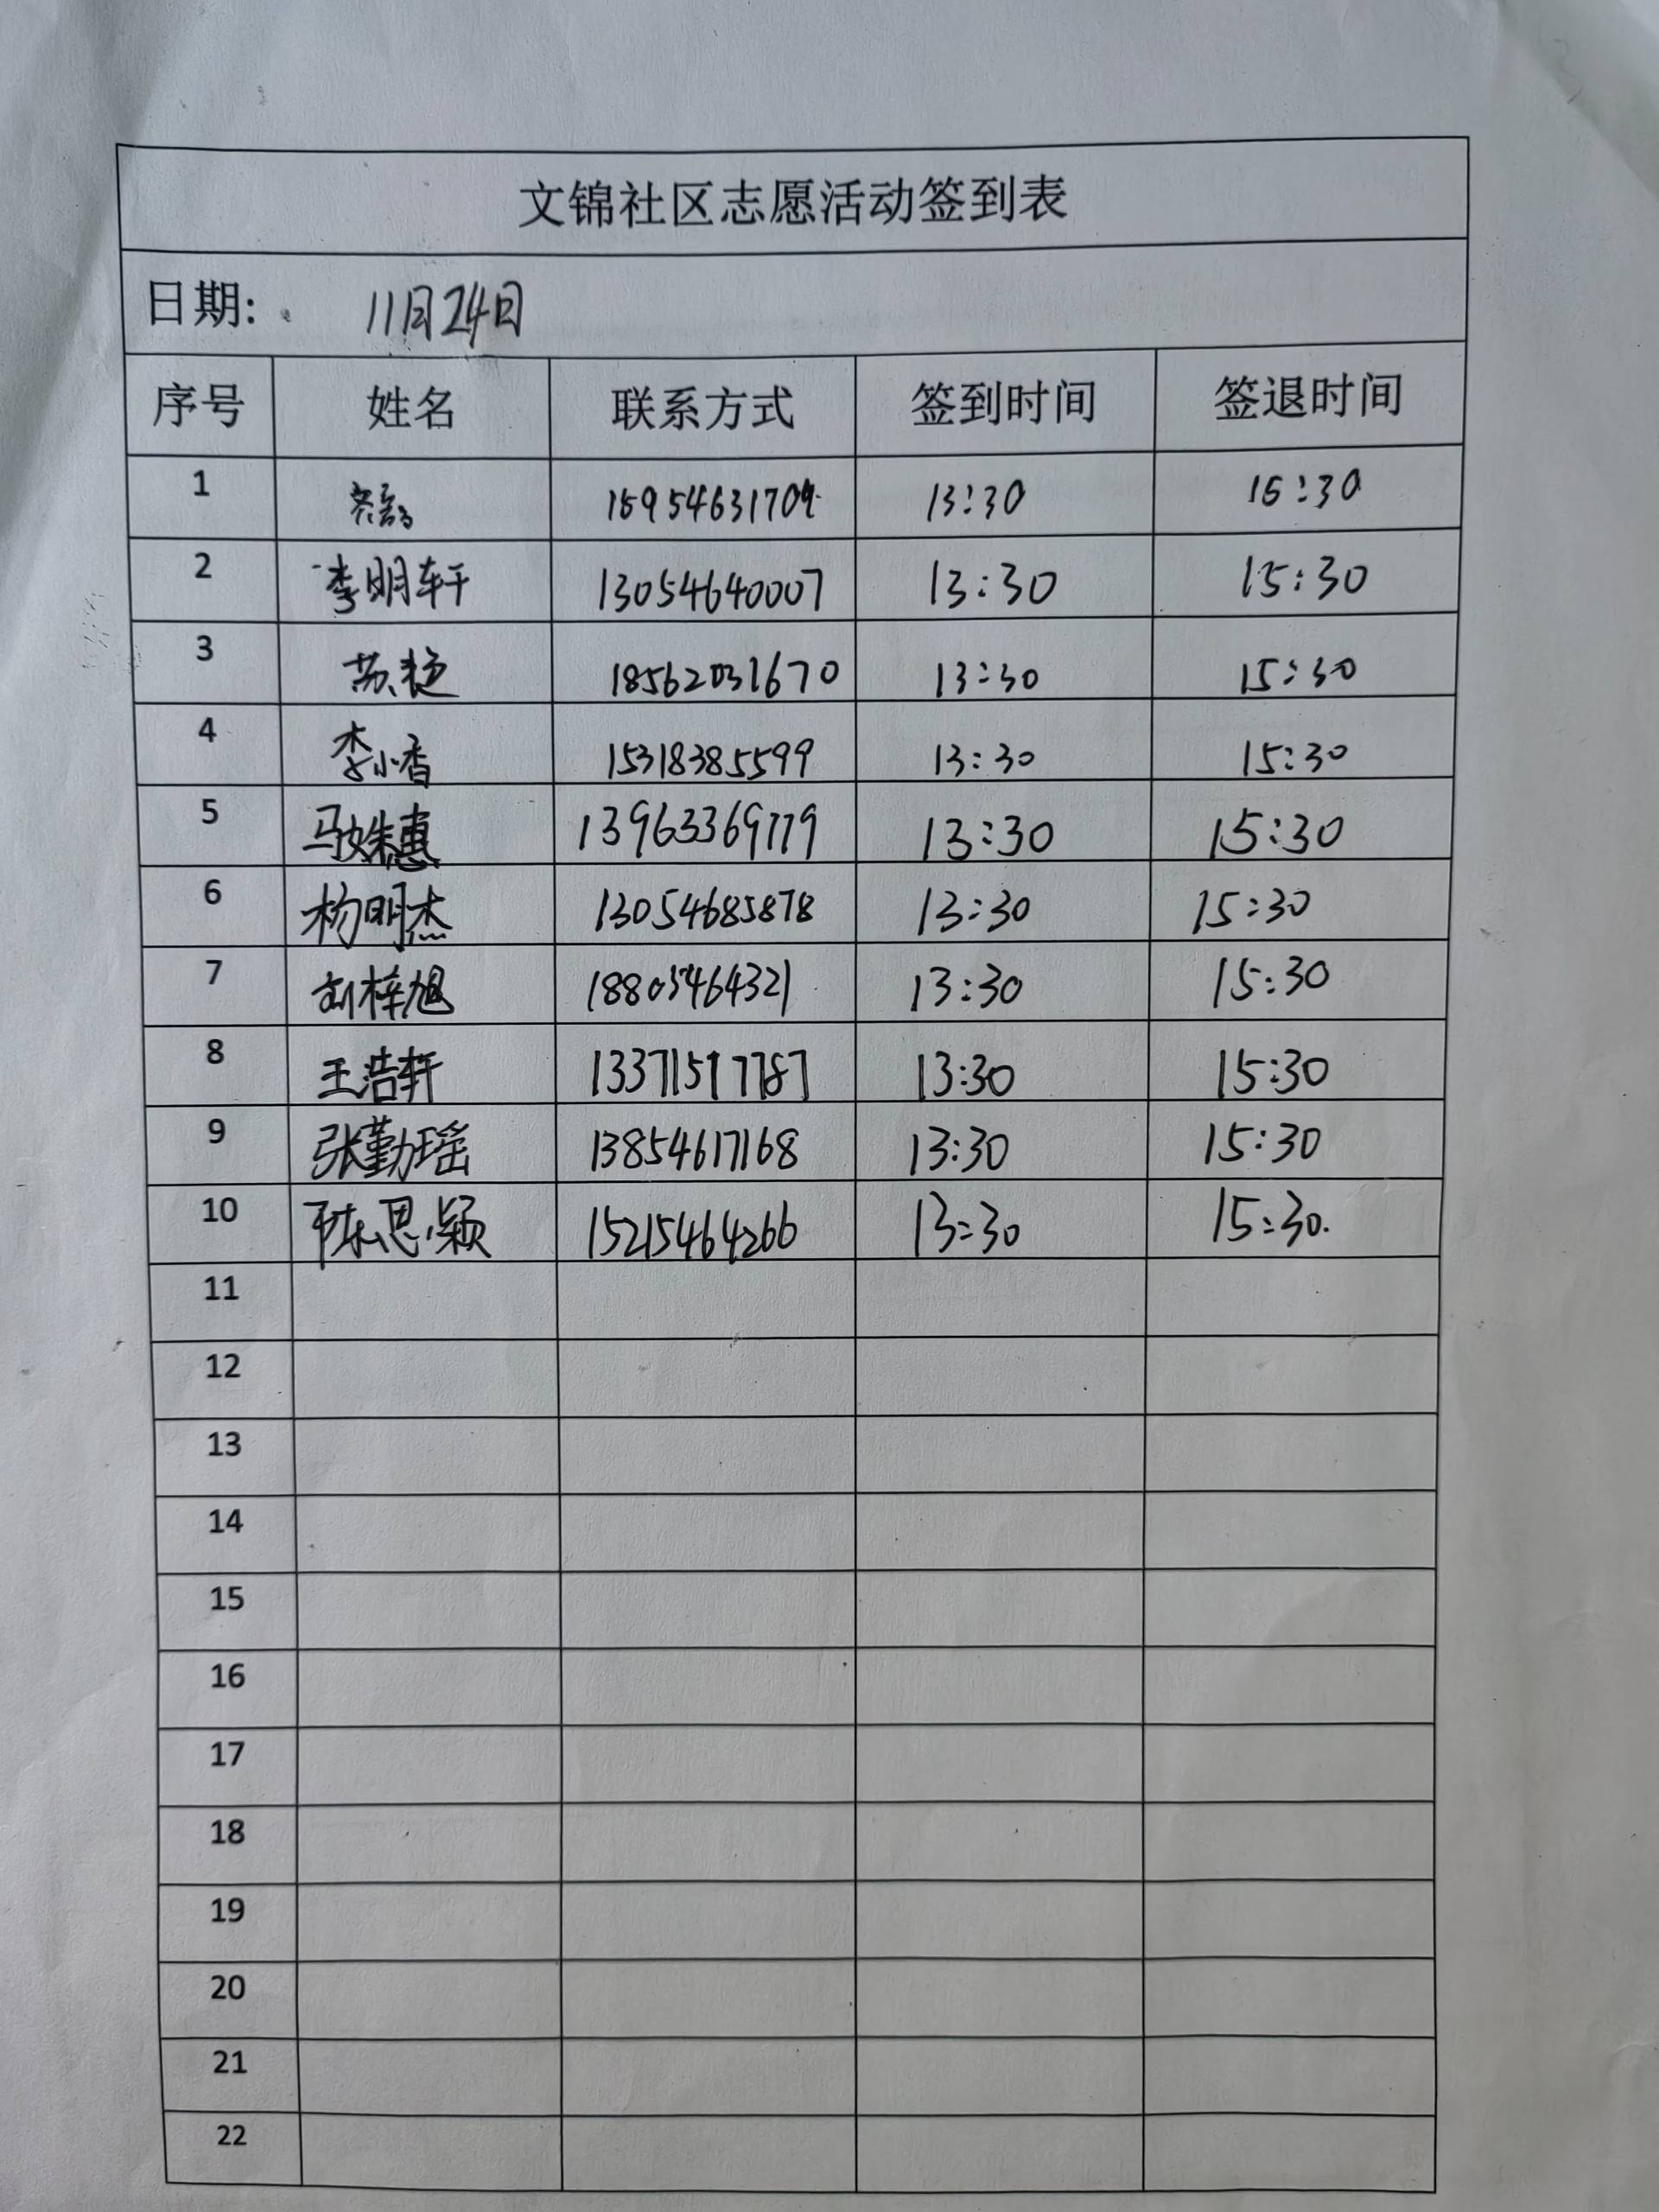 文锦社区志愿活动签到表
日期: 11月24日
序号 姓名 联系方式 签到时间 签退时间
1 15954631709 13:30 15:30
2 李明轩 13054640007 13:30 15:30
3 苏 18562031670 13:30 15:30
4 李小香 15318385599 13:30 15:30
5 马姝惠 13963369779 13:30 15:30
6 杨明杰 13054685878 13:30 15:30
7 刘梓旭 18805464321 13:30 15:30
8 王浩轩 13371597787 13:30 15:30
9 张勤瑶 13854617168 13:30 15:30
10 陈思颖 15215464266 13:30 15:30.
11
12
13
14
15
16
17
18
19
20
21
22